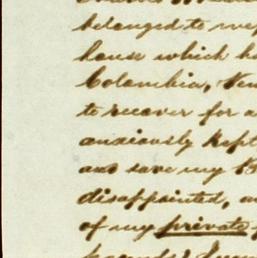 belonged to my
house which h
Columbia, Ven
to recover for a
anxiously kept
and save my B
disappointed, a
of my private